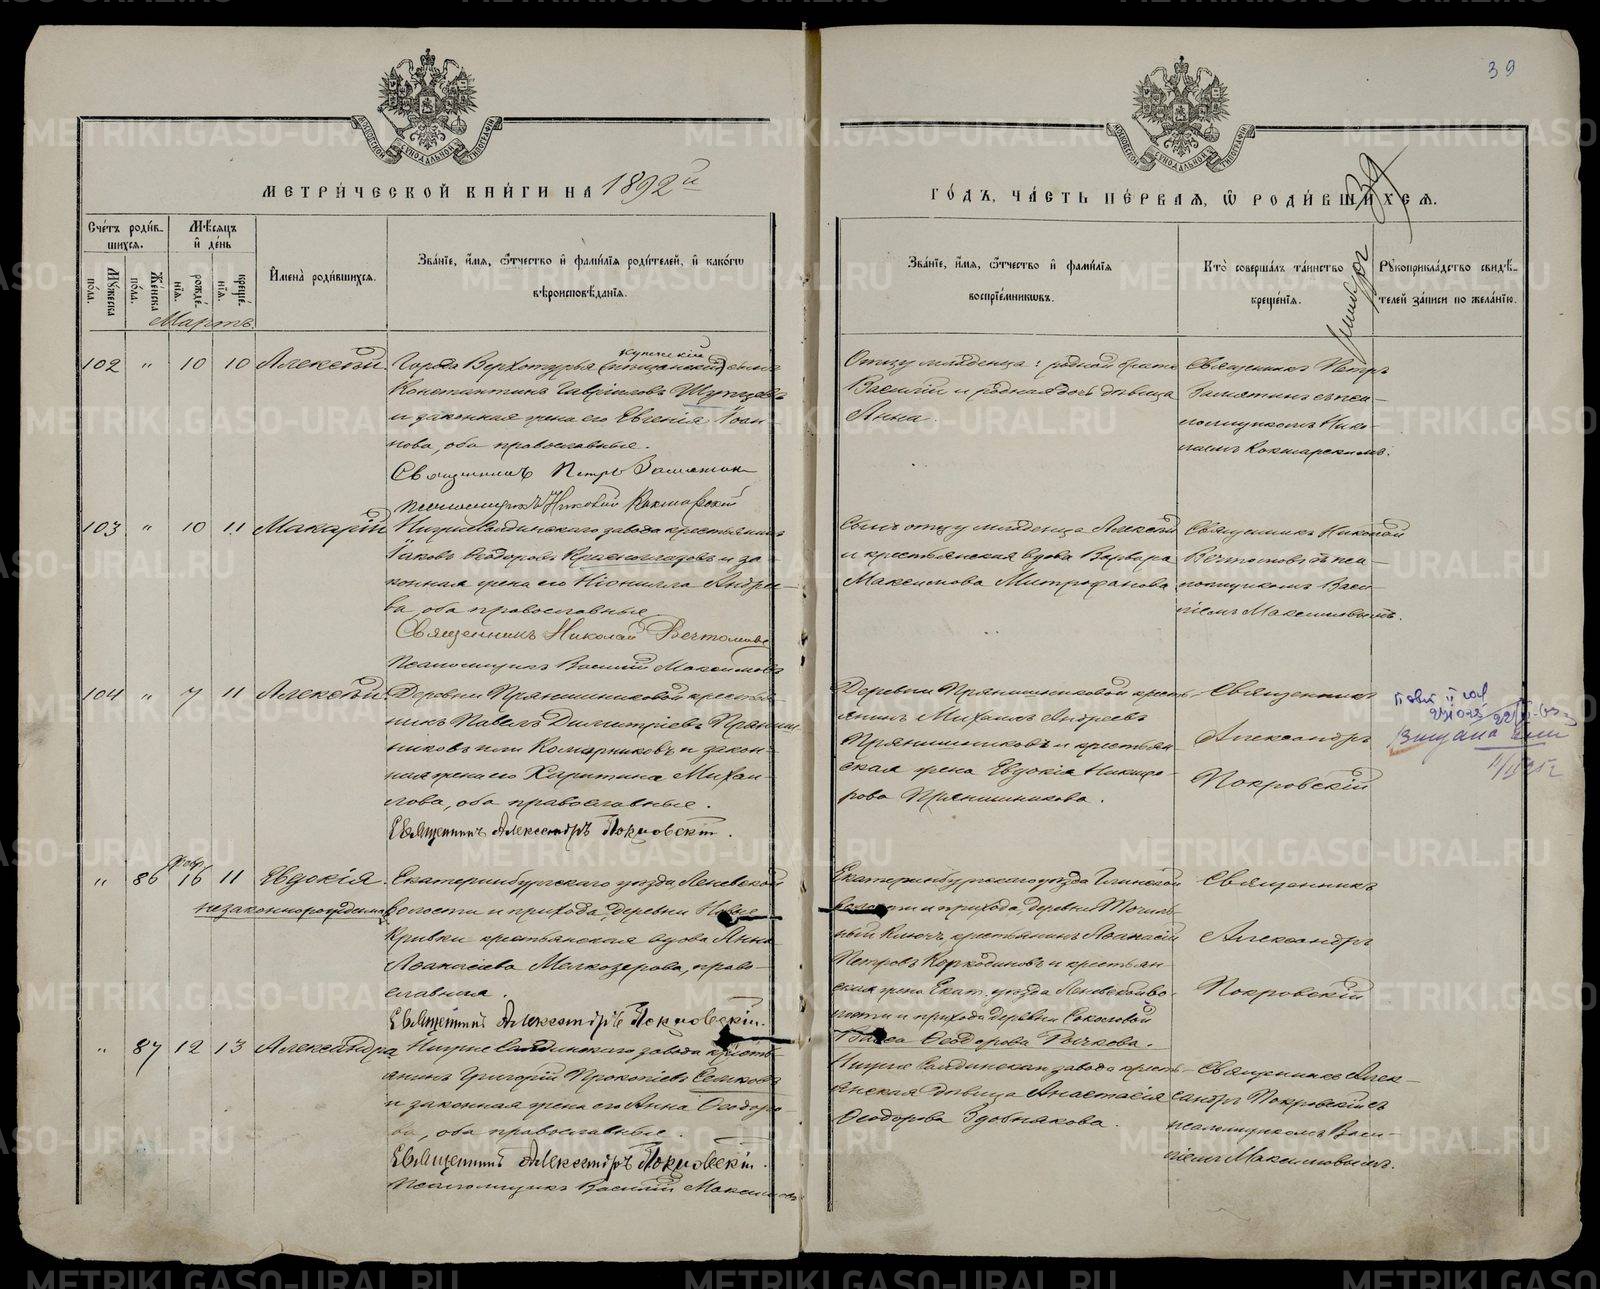 39
МЕТРИ́ЧЕСКОЙ КНИ́ГИ НА 1892 й
ГО́ДЪ, ЧА́СТЬ ПЕ́РВАЯ, Ѿ РОДИ́ВШИХСЯ.
39
Сче́тъ роди́в-
шихся.
Мꙋ́жеска
по́ла.
Же́нска
по́ла.
Мѣ́сяцъ
и҆ де́нь
рожде́-
нїя.
креще́-
нїя.
Мартъ
И҆мена̀ роди́вшихся.
Зва́нїе, и҆́мя, ѻ҆́тчество и҆ фами́лїя роди́телей, и҆ како́гѡ
вѣроисповѣ́данїя.
Зва́нїе, и҆́мя, ѻ҆́тчество и҆ фами́лїя
воспрїе́мниковъ.
Кто̀ соверша́лъ та́инство
креще́нїя.
Рꙋкоприкла́дство свидѣ́-
телей за́писи по жела́нїю.
102 " 10 10 Алексѣй.
купескій
Города Верхотурья (мѣщанскій) сынъ
Константинъ Гавріиловъ
и законная жена его Евгенія Іоан-
нова, оба православные.
Священникъ Петръ Замятин
псаломщикъ Николай Кокшарский
Отцу младенца: родной братъ
Василій и родная дочь дѣвица
Анна.
Священникъ Петръ
Замятинъ съ пса-
ломщикомъ Нико-
лаемъ Кокшарскимъ.
103 " 10 11 Макарій
Нижне Салдинскаго завода крестьянинъ
Іаковъ Ѳеодоровъ и за-
конная жена его Неонилла Андрее-
ва, оба православные.
Священникъ Николай Вечтомовъ
Псаломщикъ Василій Максимовъ
Сынъ отцу младенца Алексѣй
и крестьянская вдова Варвара
Максимова Митрофанова
Священникъ Николай
Вечтомовъ съ пса-
ломщикомъ Васи-
ліемъ Максимовымъ.
104 " 7 11 Алексѣй.
Деревни Прянишниковой крестья-
нинъ Павелъ Димитріевъ Прянишн-
никовъ или Комарниковъ и закон-
ная жена его Харитина Михаи-
лова, оба православные.
Священникъ Александръ Покровскій.
Деревни Прянишниковой кресть-
янинъ Михаилъ Андреевъ
Прянишниковъ и крестьян-
ская жена Евдокія Никифо-
рова Прянишникова.
Священникъ
Александръ
Покровскій
Февр.
" 86 16 11 Евдокія.
незаконнорожденная
Екатеринбургскаго уѣзда Леневской
волости и прихода, деревни Новые
Кривки крестьянская вдова Анна
Аѳанасіева Мелкозерова, право-
славная.
Священникъ Александръ Покровскій.
Екатеринбургскаго уѣзда Глинской
волости и прихода, деревни Точиль-
ный Ключъ, крестьянинъ Аѳанасій
Петровъ Коркодиновъ и крестьян-
ская жена Екат. уѣзда Леневской во-
лости и прихода деревни Соколовой
Васса Ѳеодорова Рычкова.
Священникъ
Александръ
Покровскій
" 87 12 13 Александра
Нижне Салдинскаго завода кресть-
янинъ Григорій Прокопіевъ
и законная жена его Анна Ѳеодоро-
ва, оба православные.
Священникъ Александръ Покровскій.
Псаломщикъ Василій Максимовъ
Нижне Салдинскаго завода кресть-
янская дѣвица Анастасія
Ѳеодорова Здобнякова.
Священникъ Алек-
сандръ Покровскій съ
псаломщикомъ Васи-
ліемъ Максимовымъ.
METRIKI.GASO-URAL.RU